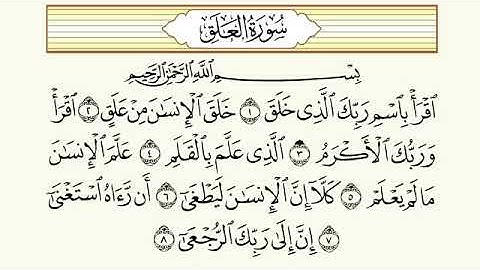 سُورَةُ الْعَلَقِ
بِسْمِ اللَّهِ الرَّحْمَٰنِ الرَّحِيمِ
اقْرَأْ بِاسْمِ رَبِّكَ الَّذِي خَلَقَ ١ خَلَقَ الْإِنْسَانَ مِنْ عَلَقٍ ٢ اقْرَأْ
وَرَبُّكَ الْأَكْرَمُ ٣ الَّذِي عَلَّمَ بِالْقَلَمِ ٤ عَلَّمَ الْإِنْسَانَ
مَا لَمْ يَعْلَمْ ٥ كَلَّا إِنَّ الْإِنْسَانَ لَيَطْغَىٰ ٦ أَنْ رَءَاهُ اسْتَغْنَىٰ
٧ إِنَّ إِلَىٰ رَبِّكَ الرُّجْعَىٰ ٨